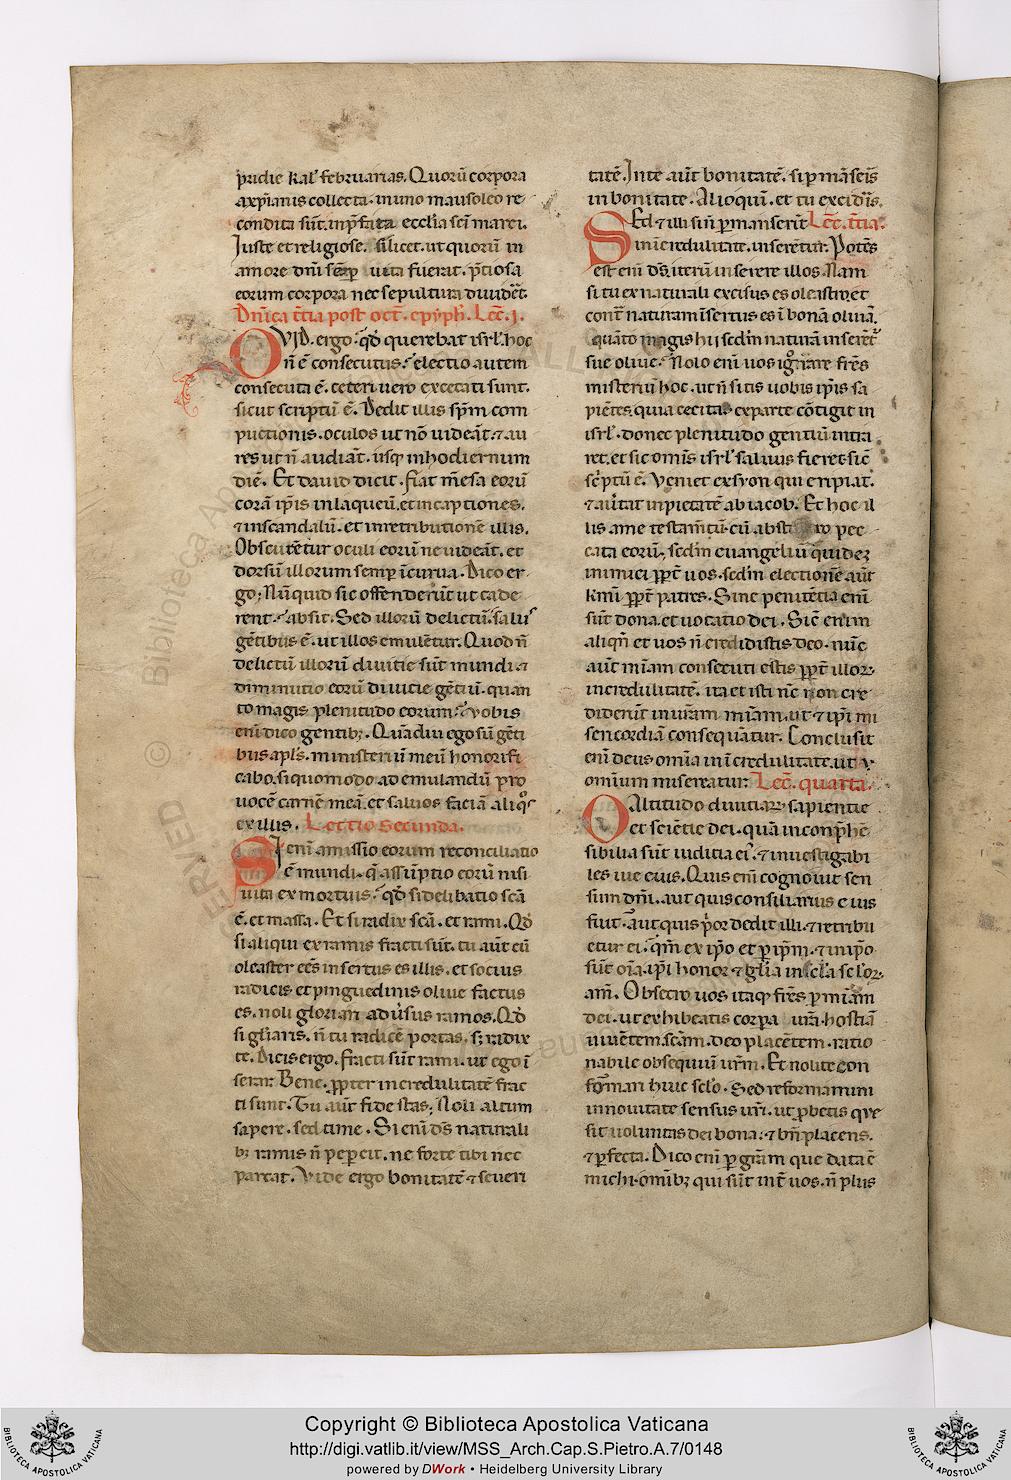 pridie kal' februarias. Quorũ corpora
a xp̃ianis collecta. in uno mausoleo re
condita sũt. in p̃fata eccl̃ia sc̃i marci.
Iuste et religiose. silicet. ut quorũ in
amore dñi semp uita fuerat. p̃tiosa
eorum corpora nec sepultura diuidẽt.
Dñica t̃tia post oct̃. epyph̃. Lec̃. j.
QVID. ergo. qð querebat isrl'. hoc
ñ ẽ consecutus. electio autem
consecuta ẽ. ceteri uero excecati sunt.
sicut scriptũ ẽ. Dedit illis sp̃m com
punctionis. oculos ut nõ uideãt. ⁊ au
res ut ñ audiãt. usq̃ in hodiernum
diẽ. Et dauid dicit. fiat mẽsa eorũ
corã ip̃is in laqueũ. et in captiones.
⁊ in scandalũ. et in retributionẽ illis.
Obscurẽtur oculi eorũ ne uideãt. et
dorsũ illorum semp ĩcurua. Dico er
go; Nũquid sic offenderũt ut cade
rent. absit. Sed illorũ delictũ. salus
gẽtibus ẽ. ut illos emulẽtur. Quod ñ
delictũ illorũ diuitie sũt mundi. ⁊
diminutio eorũ diuicie gẽtiũ. quan
to magis plenitudo eorum. Vobis
eñi dico gentibꝫ. Quadiu ego sũ gẽti
bus apl̃s. ministeriũ meũ honorifi
cabo. si quomodo ad emulandũ pro
uocẽ carnẽ meã. et saluos faciã aliqͦs
ex illis. Lectio secunda.
Si eñi amissio eorum reconciliatio
ẽ mundi. q̃ assũptio eorũ nisi
uita ex mortuis. qð si delibatio sc̃a
ẽ. et massa. Et si radix sc̃a. et rami. Qð
si aliqui ex ramis fracti sũt. tu aũt cũ
oleaster eẽs insertus es illis. et socius
radicis et pinguedinis oliue factus
es. noli gloriari aduersus ramos. Qð
si gl̃iaris. ñ tu radicẽ portas. sꝫ radix
te. Dicis ergo. fracti sũt rami. ut ego ĩ
serar. Bene. ꝓpter incredulitatẽ frac
ti sunt. Tu aũt fide stas; Noli altum
sapere. sed time. Si eñi ds̃ naturali
bꝫ ramis ñ pepercit. ne forte tibi nec
parcat. Vide ergo bonitatẽ ⁊ seueri
tatẽ. In te aũt bonitatẽ. si pmãseĩs
in bonitate. Alioquĩ. et tu exciderĩs.
Sed ⁊ illi si ñ pmanserĩt Lec̃. t̃tia.
in ĩcredulitate. inserẽtur. Potẽs
est eñi ds̃. iterũ inserere illos. Nam
si tu ex naturali excisus es oleastro. et
cont̃ naturam ĩsertus es ĩ bonã oliuã.
quãto magis hij sed̃m naturã inserẽt
sue oliue. Nolo eñi uos ignorare fr̃es
misteriũ hoc. ut ñ sitis uobis ip̃is sa
piẽtes. quia cecitas ex parte cõtigit in
isrl'. donec plenitudo gentiũ intra
ret. et sic omĩs isrl' saluus fieret. sic̃
sc̃ptũ ẽ. Veniet ex syon qui eripiat.
⁊ au̾tat inpietatẽ ab iacob. Et hoc il
lis a me testam̃tũ. cũ abstulero pec
cata eorũ. sed̃m euangeliũ quidez
inimici ꝓpt̃ uos. sed̃m electionẽ aũt
k̃mi ꝓpt̃ patres. Sine penitẽtia eñi
sũt dona. et uocatio dei. Sic̃ enim
aliqñ et uos ñ credidistis deo. nũc
aũt mĩam consecuti estis ꝓpt̃ illoꝝ
incredulitatẽ. ita et isti nc̃ non cre
diderũt in ur̃am mĩam. ut ⁊ ip̃i mi
sericordiã consequãtur. Conclusit
eñi deus omĩa in ĩcredulitate. ut
omĩum misereatur. Lec̃. quarta.
O altitudo diuitiaꝝ sapientie
et sciẽtie dei. quã inconp̃hẽ
sibilia sũt iuditia ei'. ⁊ inuestigabi
les uie eius. Quis eñi cognouit sen
sum dñi. aut quis consiliarius eius
fuit. aut quis p̃or dedit illi. ⁊ retribu
etur ei. qm̃ ex ip̃o et p ip̃m. ⁊ in ip̃o
sũt oĩa. ip̃i honor ⁊ gl̃ia in sc̃la sc̃loꝝ.
am̃. Obsecro uos itaq̃ fr̃es p mĩam
dei. ut exhibeatis corpora ur̃a. hostiã
uiuẽtem. sc̃am. deo placẽtem. ratio
nabile obsequiũ ur̃m. Et nolite con
formari huic sc̃lo. Sed reformamini
in nouitate sensus ur̃i. ut pbetis que
sit uoluntas dei bona. ⁊ bñ placens.
⁊ pfecta. Dico eñi p gr̃am que data ẽ
michi. omĩbꝫ qui sũt int̃ uos. ñ plus
Copyright © Biblioteca Apostolica Vaticana
http://digi.vatlib.it/view/MSS_Arch.Cap.S.Pietro.A.7/0148
powered by DWork • Heidelberg University Library
BIBLIOTECA APOSTOLICA VATICANA
BIBLIOTECA APOSTOLICA VATICANA